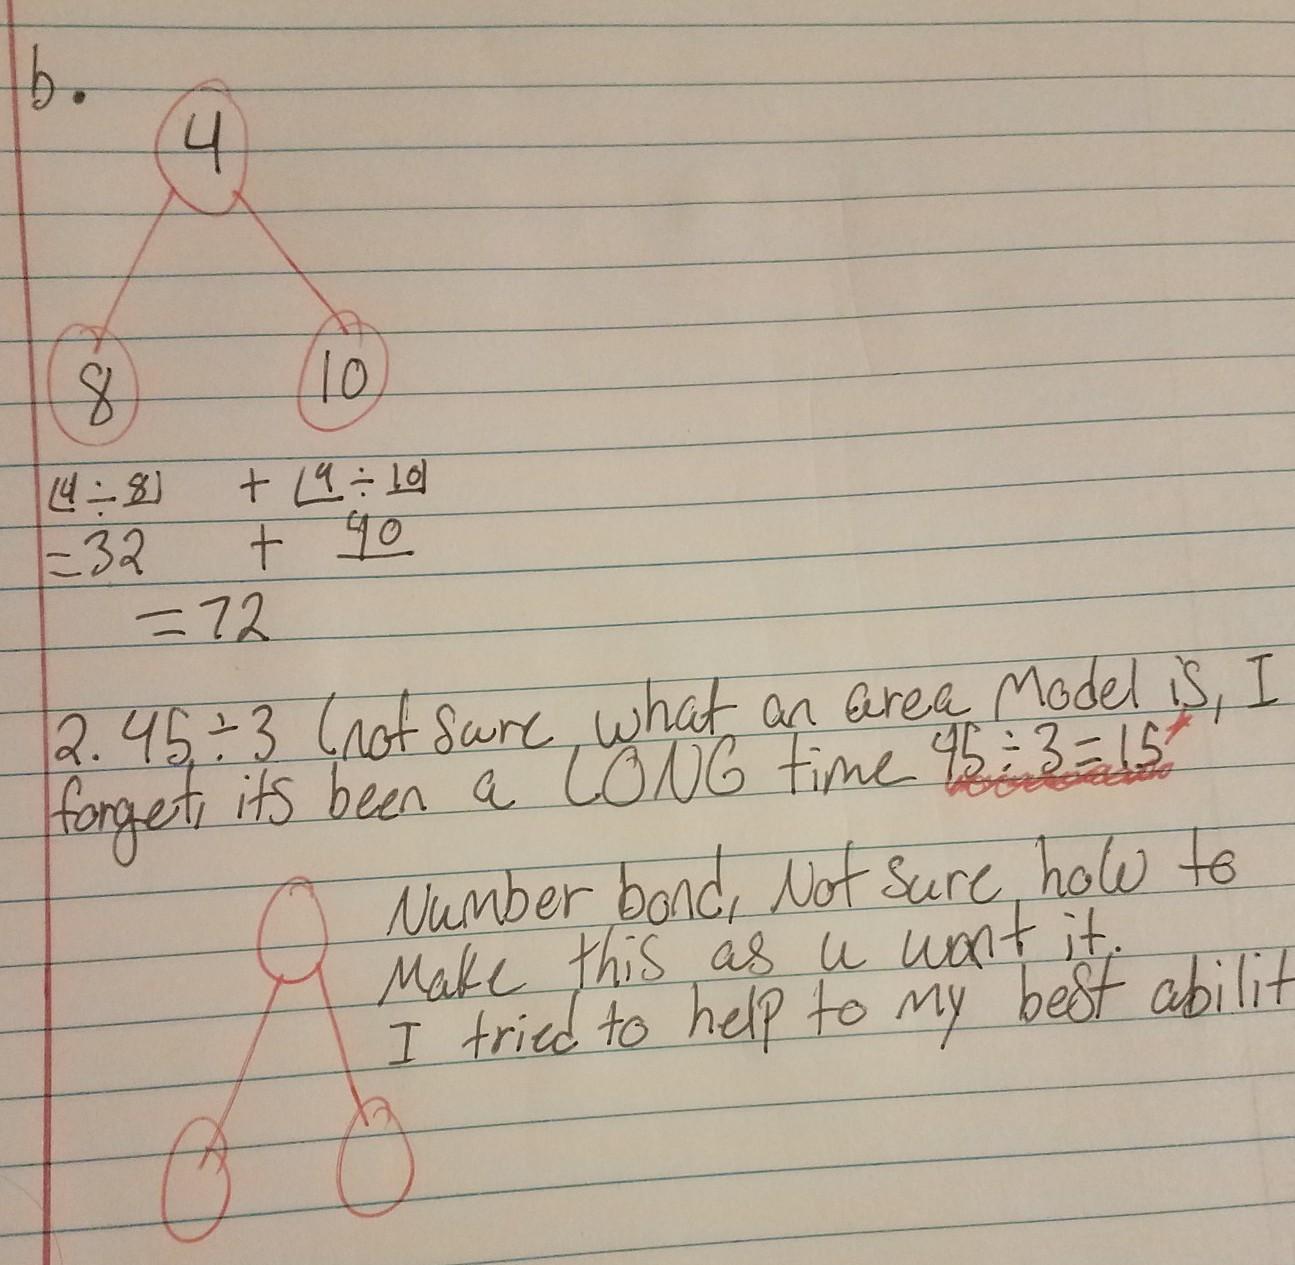 b.
4
8 10
(4 ÷ 8) + (4 ÷ 10)
= 32 + 40
= 72
2. 45 ÷ 3 (not sure what an area Model is, I
forget, its been a LONG time 45 ÷ 3 = 15
Number bond, Not sure how to
Make this as u want it.
I tried to help to my best abilit